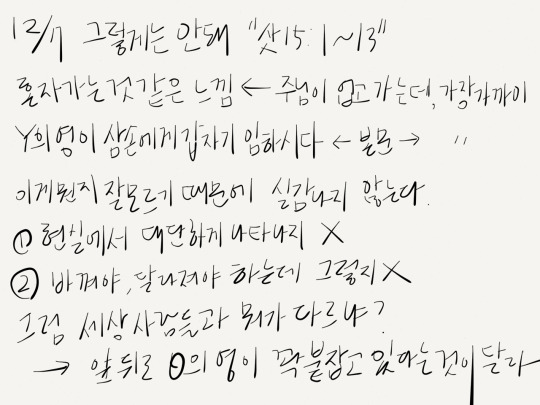 12/17 그렇게는 안돼 "삿15:1~13"
혼자가는것 같은 느낌 ← 주님이 업고 가는데, 가장가까이
Y의 영이 삼손에게 갑자기 임하시다 ← 본문 → "
이게뭔지 잘모르기 때문에 실감나지 않는다.
① 현실에서 대단하게 나타나지 X
② 바껴야, 달라져야 하는데 그렇지X
그럼 세상사람들과 뭐가 다르냐?
→ 앞뒤로 θ의 영이 꽉 붙잡고 있다는것이 달라